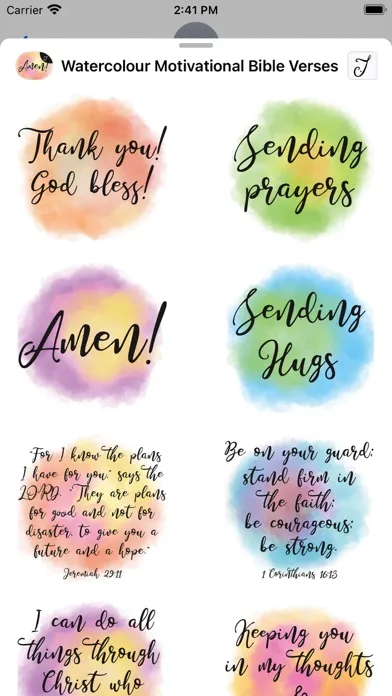 Carrier 2:41 PM
Amen! Watercolour Motivational Bible Verses J
Thank you!
God bless!
Sending
prayers
Amen!
Sending
Hugs
"For I know the plans
I have for you," says the
LORD. "They are plans
for good and not for
disaster, to give you a
future and a hope."
Jeremiah 29:11
Be on your guard;
stand firm in
the faith;
be courageous;
be strong.
1 Corinthians 16:13
I can do all
things through
Christ who
Keeping you
in my thoughts
&